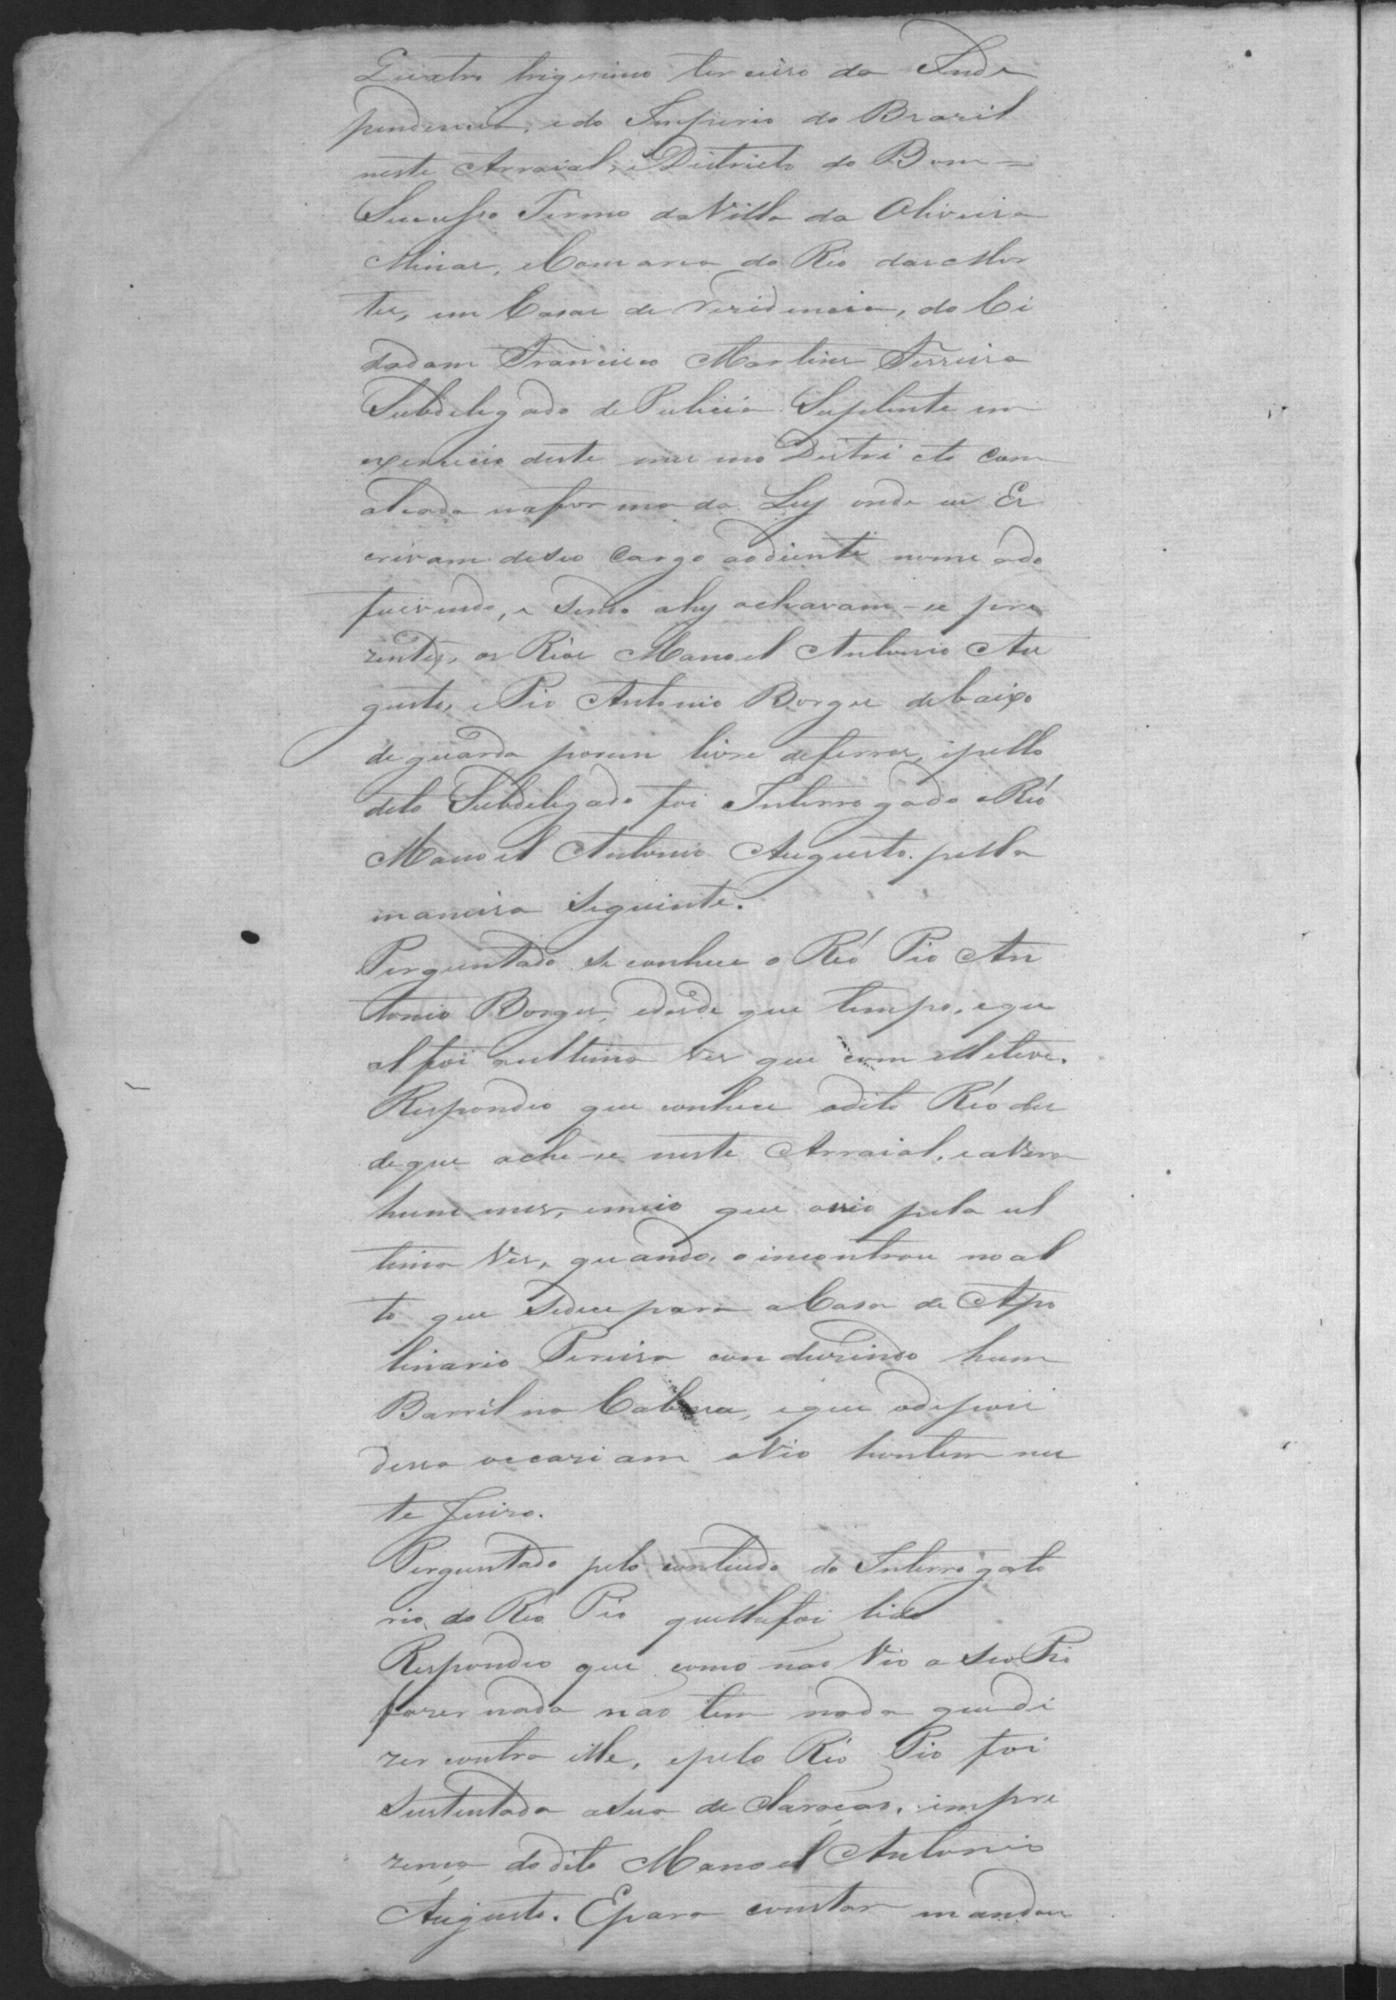 Quatro trigesimo terceiro da Inde
pendencia, e do Imperio do Brazil
neste Arraial, e Districto do Bom =
Sucesso Termo da Villa da Oliveira
Minas, e Comarca do Rio das Mor
tes, em Casas de rezidencia, do Ci
dadam Francisco Martins Ferreira
Subdelegado de Pulicia Suplente em
exercicio deste mesmo Districto com
alsada na forma da Ley onde eu Es
crivam de seo Cargo aodiente nomeado
fui vindo, e sendo ahy acharam-se pre
zentes, os Réos Manoel Antonio Au
gusto, e Pio Antonio Borges debaixo
de guarda porem livre de ferros, e pello
dito Subdelegado foi Interrogado o Réo
Manoel Antonio Augusto pella
maneira seguinte.
Perguntado se conhece o Réo Pio An
tonio Borges, e desde que tempo, e qu
al foi a ultima ves que com elle teve.
Respondeo que conhece o dito Réo des
de que acha-se neste Arraial, e a vera
hum mes, e meio que o vio pela ul
tima Ves, quando, o incontrou no al
to que dece para a Casa de Apo
linario Pereira conduzindo hum
Barril na Cabeca, e que o depois
dessa occasiam o Vio hontem nes
te Juizo.
Perguntado pelo contiudo do Interrogato
rio do Réo Pio que lhe foi lido
Respondeo que como não Vio a seo Pio
fazer nada não tem nada que di
zer contra elle, e pelo Réo Pio foi
sustentada a sua declaração, im pre
zença do dito Manoel Antonio
Augusto. E para constar mandou